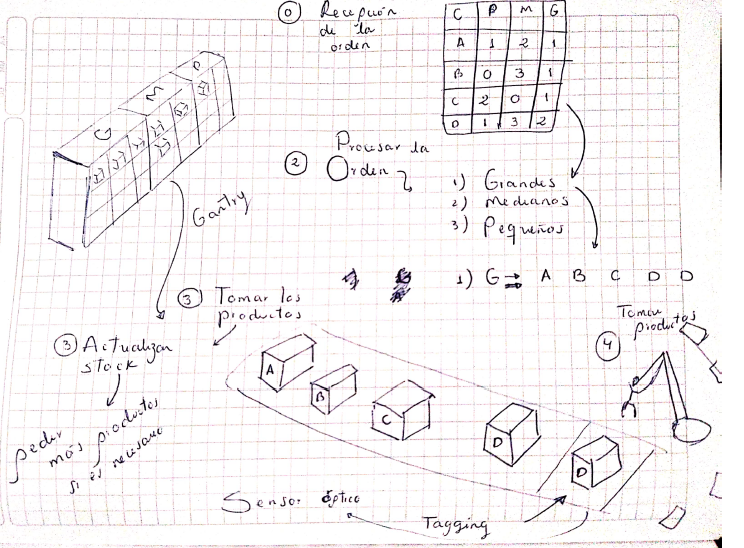 0 Recepción
de la
orden
C P M G
A 1 2 1
B 0 3 1
C 2 0 1
D 1 3 2
G M P
Gantry
2 Procesar la
Orden
1) Grandes
2) Medianos
3) Pequeños
1) G → A B C D D
3 Tomar los
productos
3 Actualizar
stock
pedir
más productos
si es necesario
4 Tomar
productos
A
B
C
D
D
Sensor óptico
Tagging